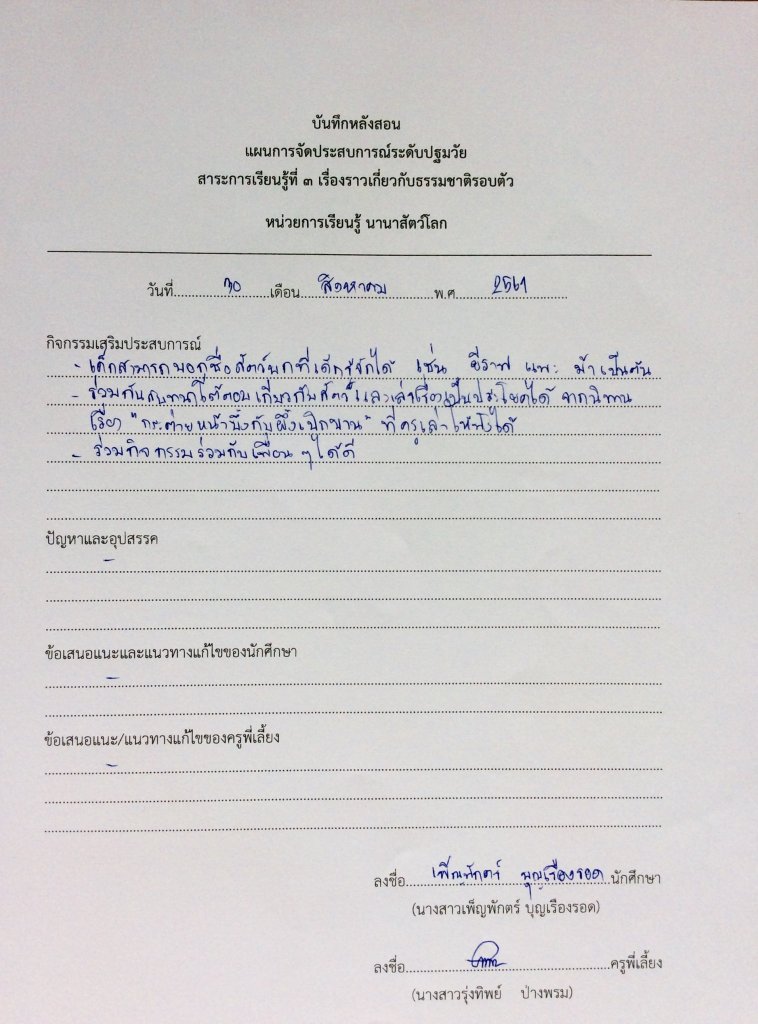 บันทึกหลังสอน
แผนการจัดประสบการณ์ระดับปฐมวัย
สาระการเรียนรู้ที่ ๓ เรื่องราวเกี่ยวกับธรรมชาติรอบตัว
หน่วยการเรียนรู้ นานาสัตว์โลก
วันที่ 30 เดือน สิงหาคม พ.ศ. 2561
กิจกรรมเสริมประสบการณ์
- เด็กสามารถบอกชื่อสัตว์บกที่เด็กรู้จักได้ เช่น ยีราฟ แพะ ม้า เป็นต้น
- ร่วมกันสนทนาโต้ตอบเกี่ยวกับสัตว์ และเล่าเรื่องเป็นประโยคได้ จากนิทาน
เรื่อง "กระต่ายหน้าบึ้งกับผึ้งเบิกบาน" ที่ครูเล่าให้ฟังได้
- ร่วมกิจกรรมร่วมกับเพื่อนๆ ได้ดี
ปัญหาและอุปสรรค
-
ข้อเสนอแนะและแนวทางแก้ไขของนักศึกษา
-
ข้อเสนอแนะ/แนวทางแก้ไขของครูพี่เลี้ยง
-
ลงชื่อ เพ็ญพักตร์ บุญเรืองรอด นักศึกษา
(นางสาวเพ็ญพักตร์ บุญเรืองรอด)
ลงชื่อ ครูพี่เลี้ยง
(นางสาวรุ่งทิพย์ ป่างพรม)